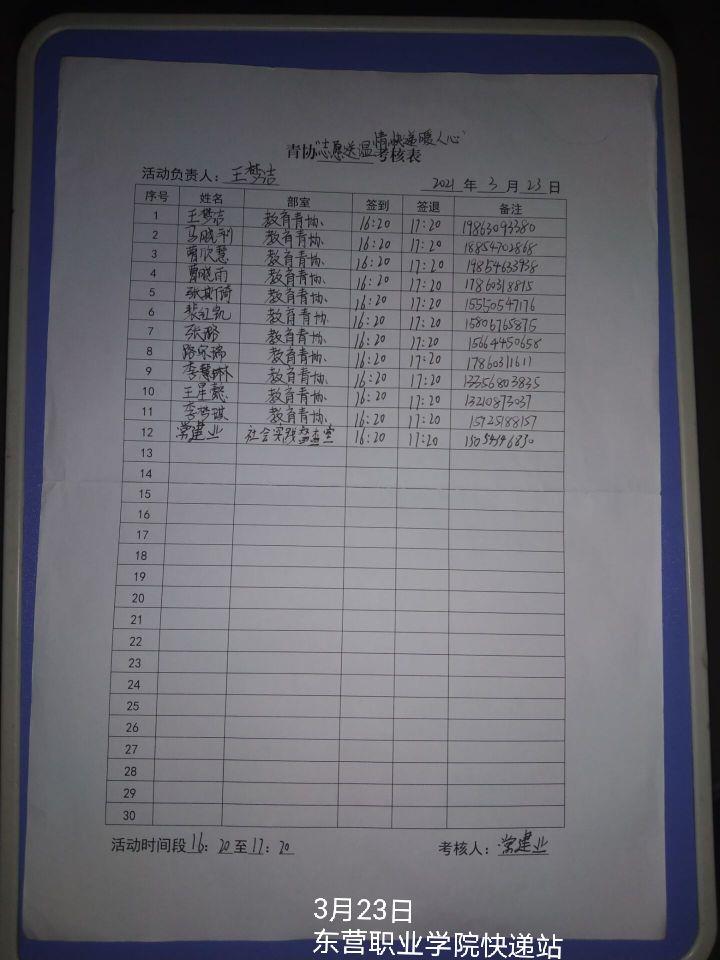 青协"志愿送温情快递暖人心"考核表
活动负责人：王梦洁 2021 年 3 月 23 日
序号 姓名 部室 签到 签退 备注
1 王梦洁 教育青协 16:20 17:20 19863093380
2 马晓利 教育青协 16:20 17:20 18854702868
3 曹欣慧 教育青协 16:20 17:20 19854633938
4 曹晓雨 教育青协 16:20 17:20 17860318815
5 张斯倚 教育青协 16:20 17:20 15550547176
6 裴红凯 教育青协 16:20 17:20 15806765875
7 张璐 教育青协 16:20 17:20 15664450658
8 路家瑞 教育青协 16:20 17:20 17860311611
9 李慧琳 教育青协 16:20 17:20 13356803835
10 王星懿 教育青协 16:20 17:20 13210873037
11 李梦琪 教育青协 16:20 17:20 15725188157
12 常建业 社会实践督查室 16:20 17:20 15054546830
13
14
15
16
17
18
19
20
21
22
23
24
25
26
27
28
29
30
活动时间段 16：20 至 17：20 考核人：常建业
3月23日
东营职业学院快递站